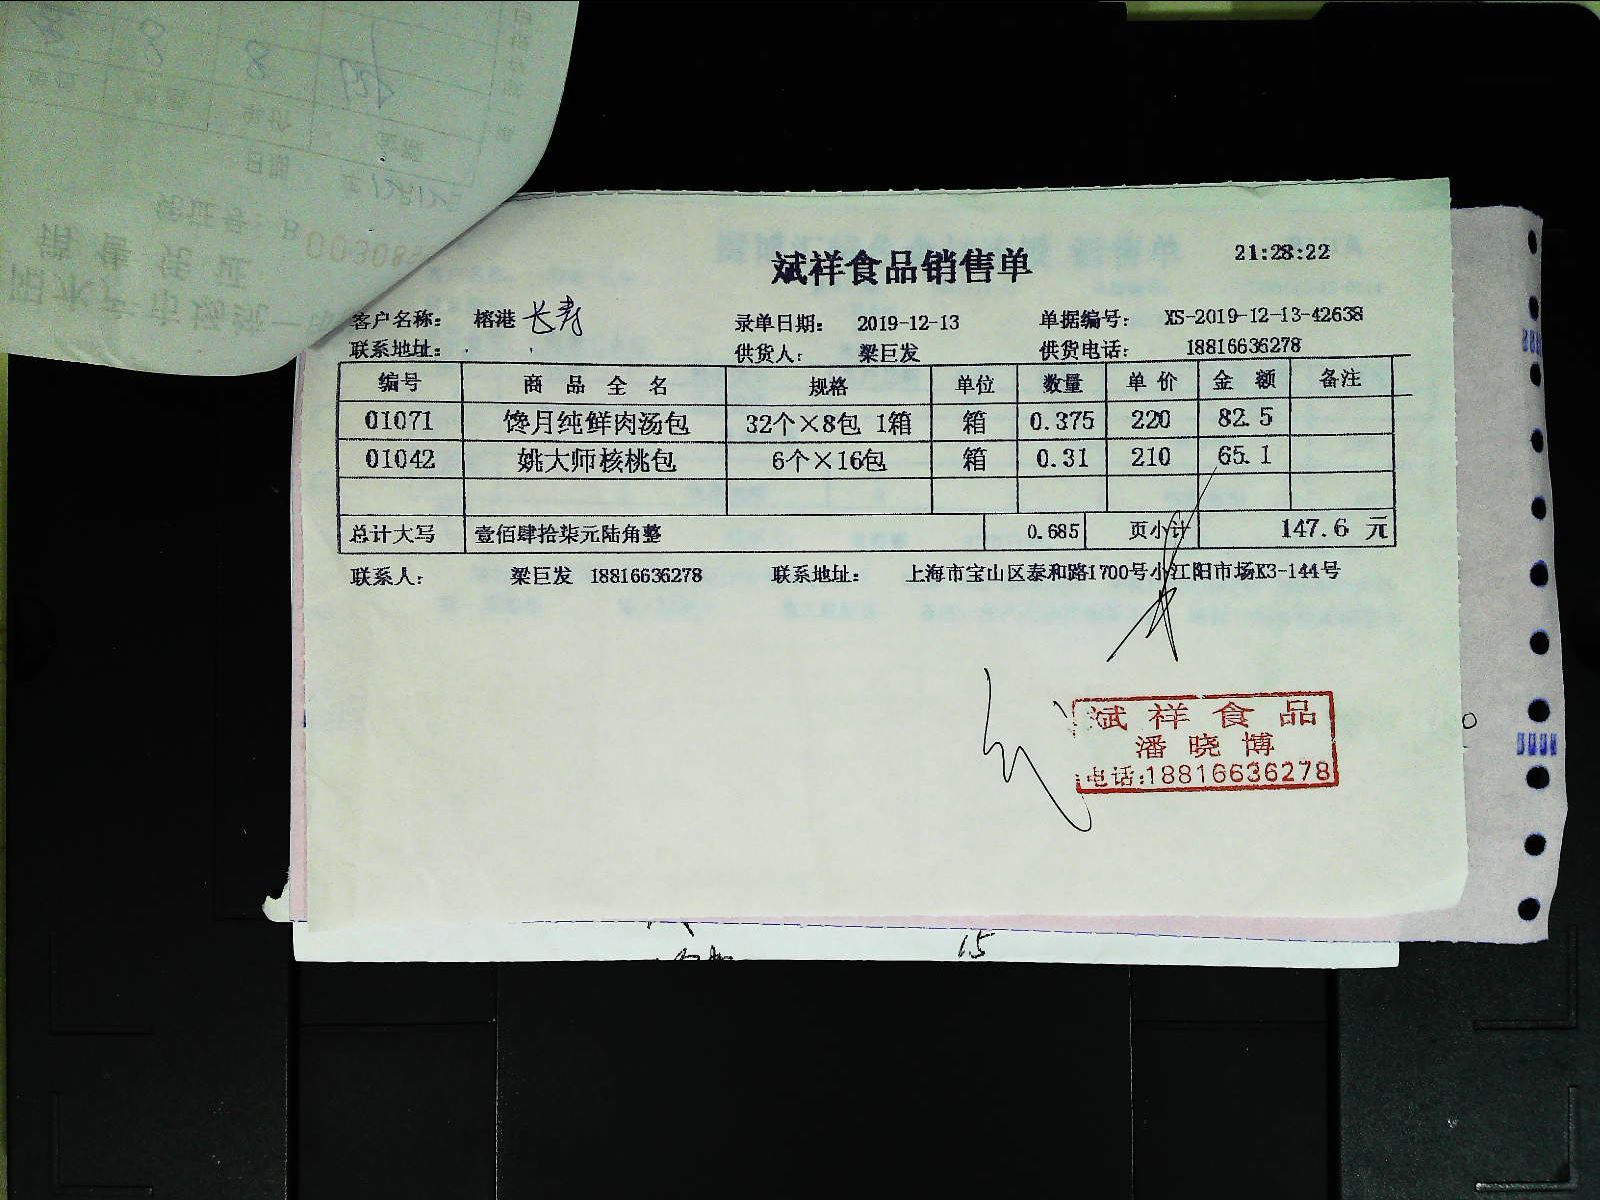 斌祥食品销售单
21:28:22
客户名称： 榕港 长寿 录单日期： 2019-12-13 单据编号： XS-2019-12-13-42638
联系地址： 供货人： 梁巨发 供货电话： 18816636278
编号 商品全名 规格 单位 数量 单价 金额 备注
01071 馋月纯鲜肉汤包 32个×8包 1箱 箱 0.375 220 82.5
01042 姚大师核桃包 6个×16包 箱 0.31 210 65.1
总计大写 壹佰肆拾柒元陆角整 0.685 页小计 147.6 元
联系人： 梁巨发 18816636278 联系地址： 上海市宝山区泰和路1700号小江阳市场K3-144号
斌祥食品
潘晓博
电话:18816636278
15